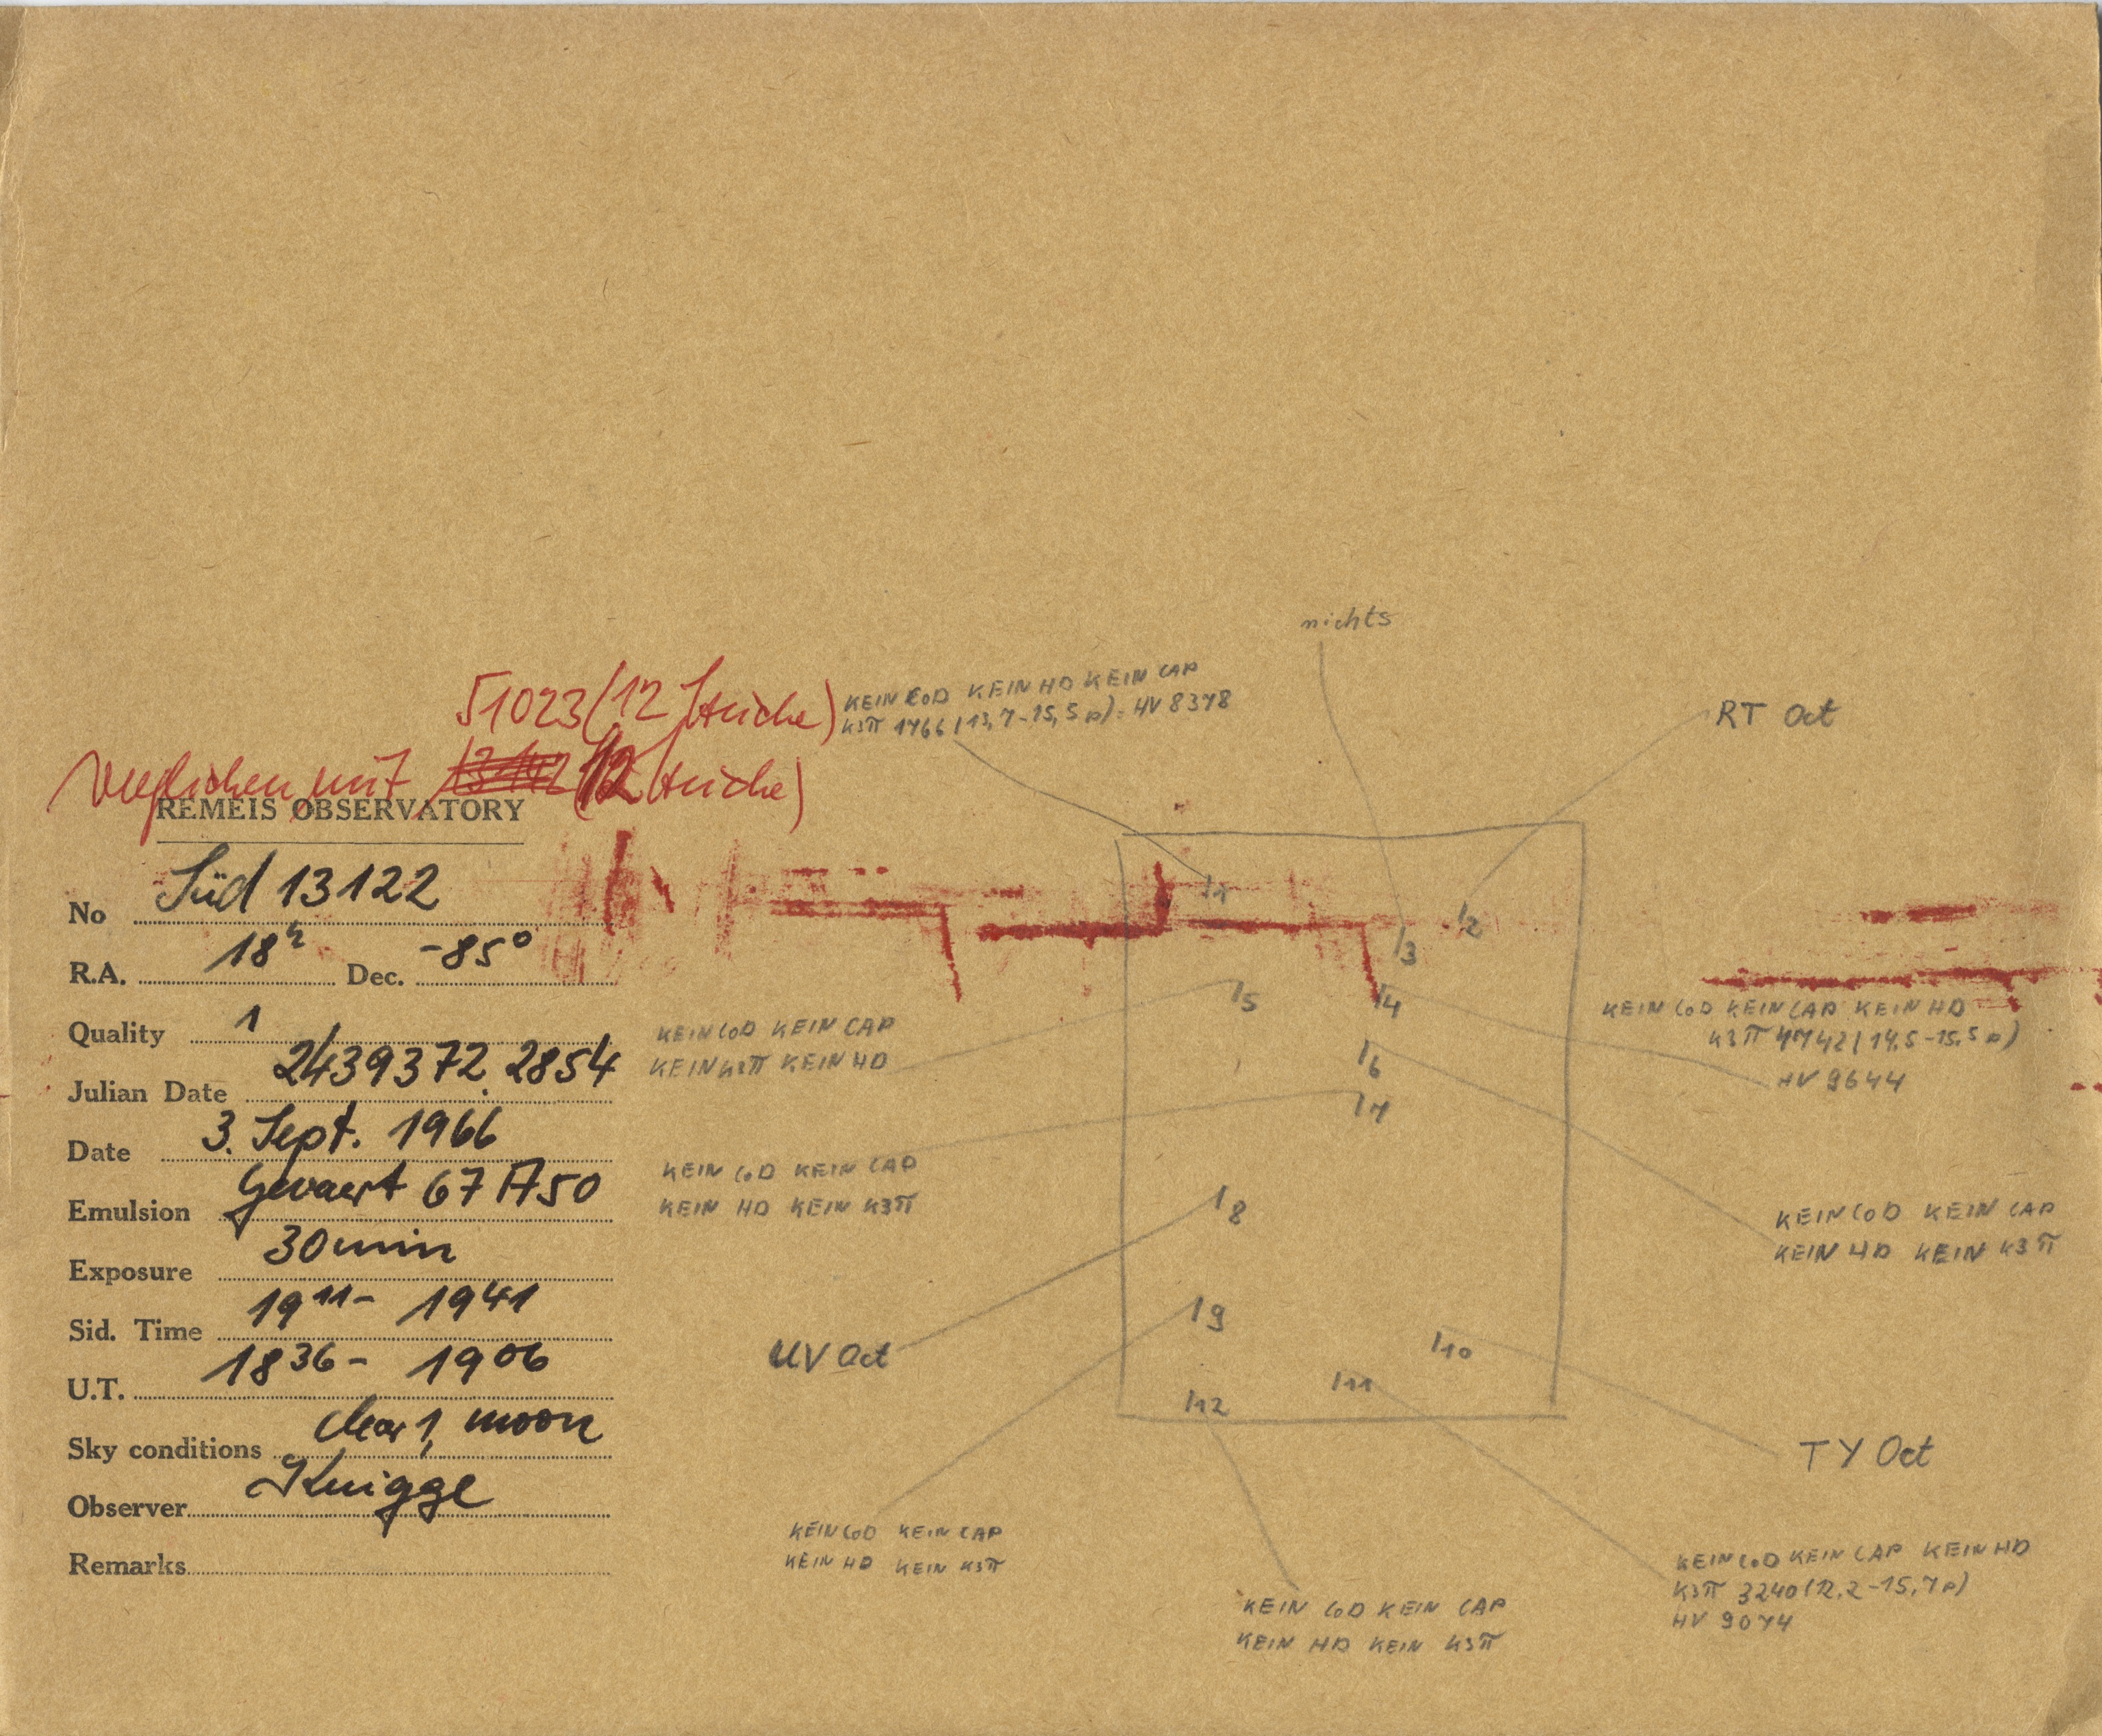 51023 (12 Striche)
verglichen mit (12 Striche)
REMEIS OBSERVATORY
No Süd 13122
R.A. 18h Dec. -85°
Quality 1
Julian Date 2439372.2854
Date 3. Sept. 1966
Emulsion Gevaert 67 A50
Exposure 30 min
Sid. Time 19 11 - 19 41
U.T. 18 36 - 19 06
Sky conditions clear 1, moon
Observer Knigge
Remarks
nichts
KEIN CoD KEIN HD KEIN CAP
K3Π 1766 (13,7-15,5 p) = HV 8378
RT Oct
/1
/2
/3
/4
/5
/6
/7
/8
/9
/10
/11
/12
KEIN CoD KEIN CAP KEIN HD
K3Π 4742 (14,5-15,5 p)
HV 9644
KEIN CoD KEIN CAP
KEIN K3Π KEIN HD
KEIN CoD KEIN CAP
KEIN HD KEIN K3Π
KEIN CoD KEIN CAP
KEIN HD KEIN K3Π
UV Oct
TY Oct
KEIN CoD KEIN CAP
KEIN HD KEIN K3Π
KEIN CoD KEIN CAP
KEIN HD KEIN K3Π
KEIN CoD KEIN CAP KEIN HD
K3Π 3240 (12,2-15,7 p)
HV 9074